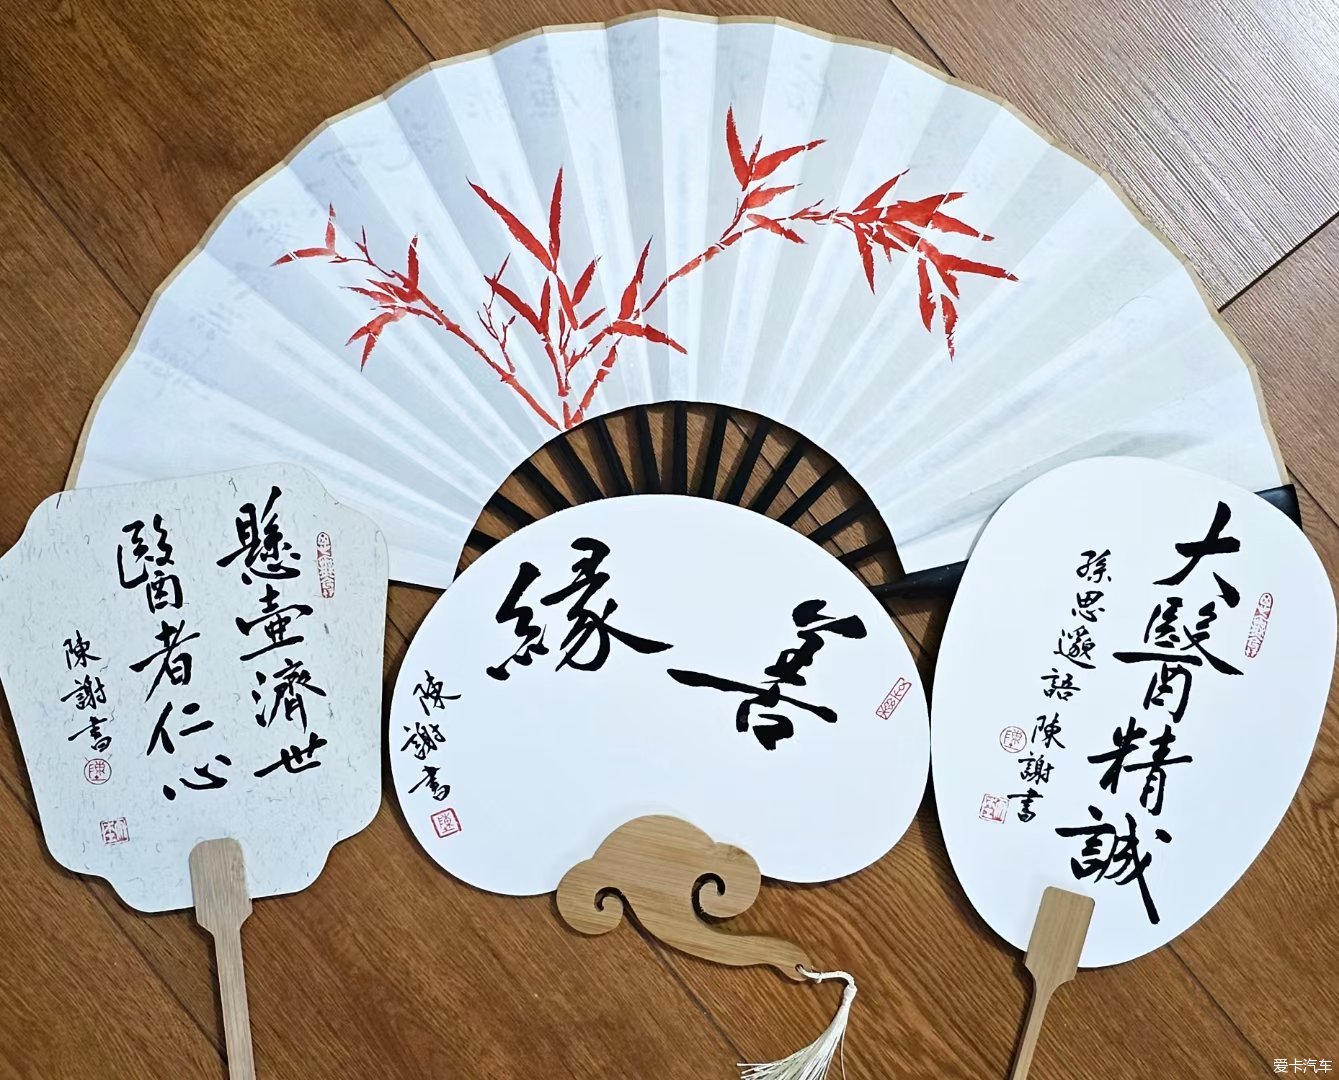 懸壺濟世
醫者仁心
陳謝書
善緣
陳謝書
大醫精誠
孫思邈語
陳謝書
爱卡汽车